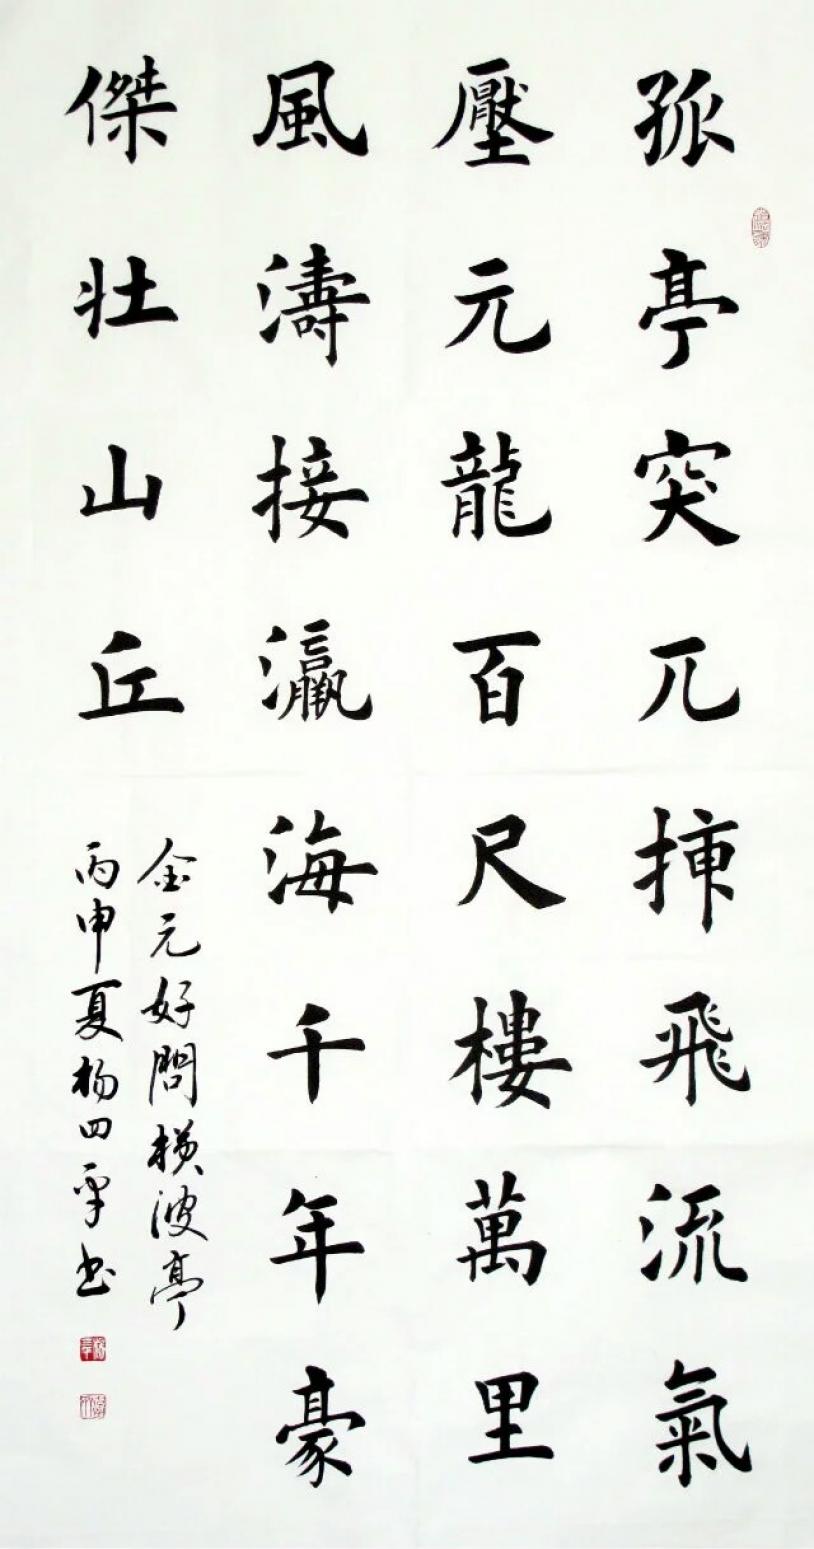 孤亭突兀揷飛流氣
壓元龍百尺樓萬里
風濤接瀛海千年豪
傑壯山丘
金元好問横波亭
丙申夏杨四平书